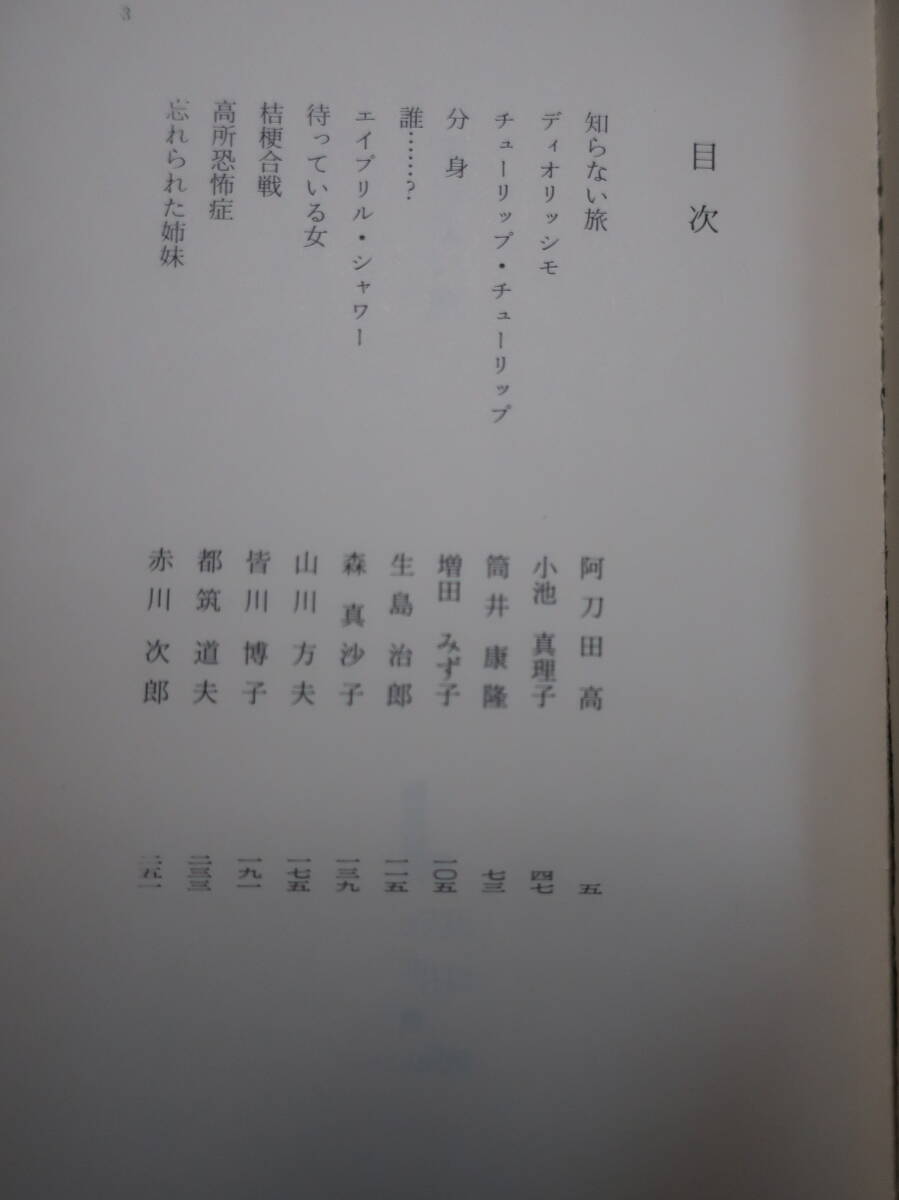 3
目次
知らない旅 阿刀田高 五
ディオリッシモ 小池真理子 四七
チューリップ・チューリップ 筒井康隆 七三
分身 増田みず子 一〇五
誰……? 生島治郎 一一五
エイプリル・シャワー 森真沙子 一三九
待っている女 山川方夫 一七五
桔梗合戦 皆川博子 一九一
高所恐怖症 都筑道夫 二三三
忘れられた姉妹 赤川次郎 二五一